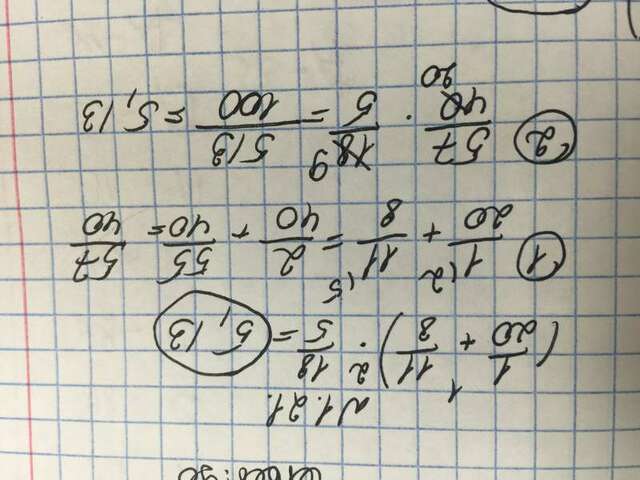 N1.21.
(1/20 + 11/8) · 18/5 = 5,13
① 1/20 + 11/8 = 2/40 + 55/40 = 57/40
② 57/40 · 18/5 = 513/100 = 5,13